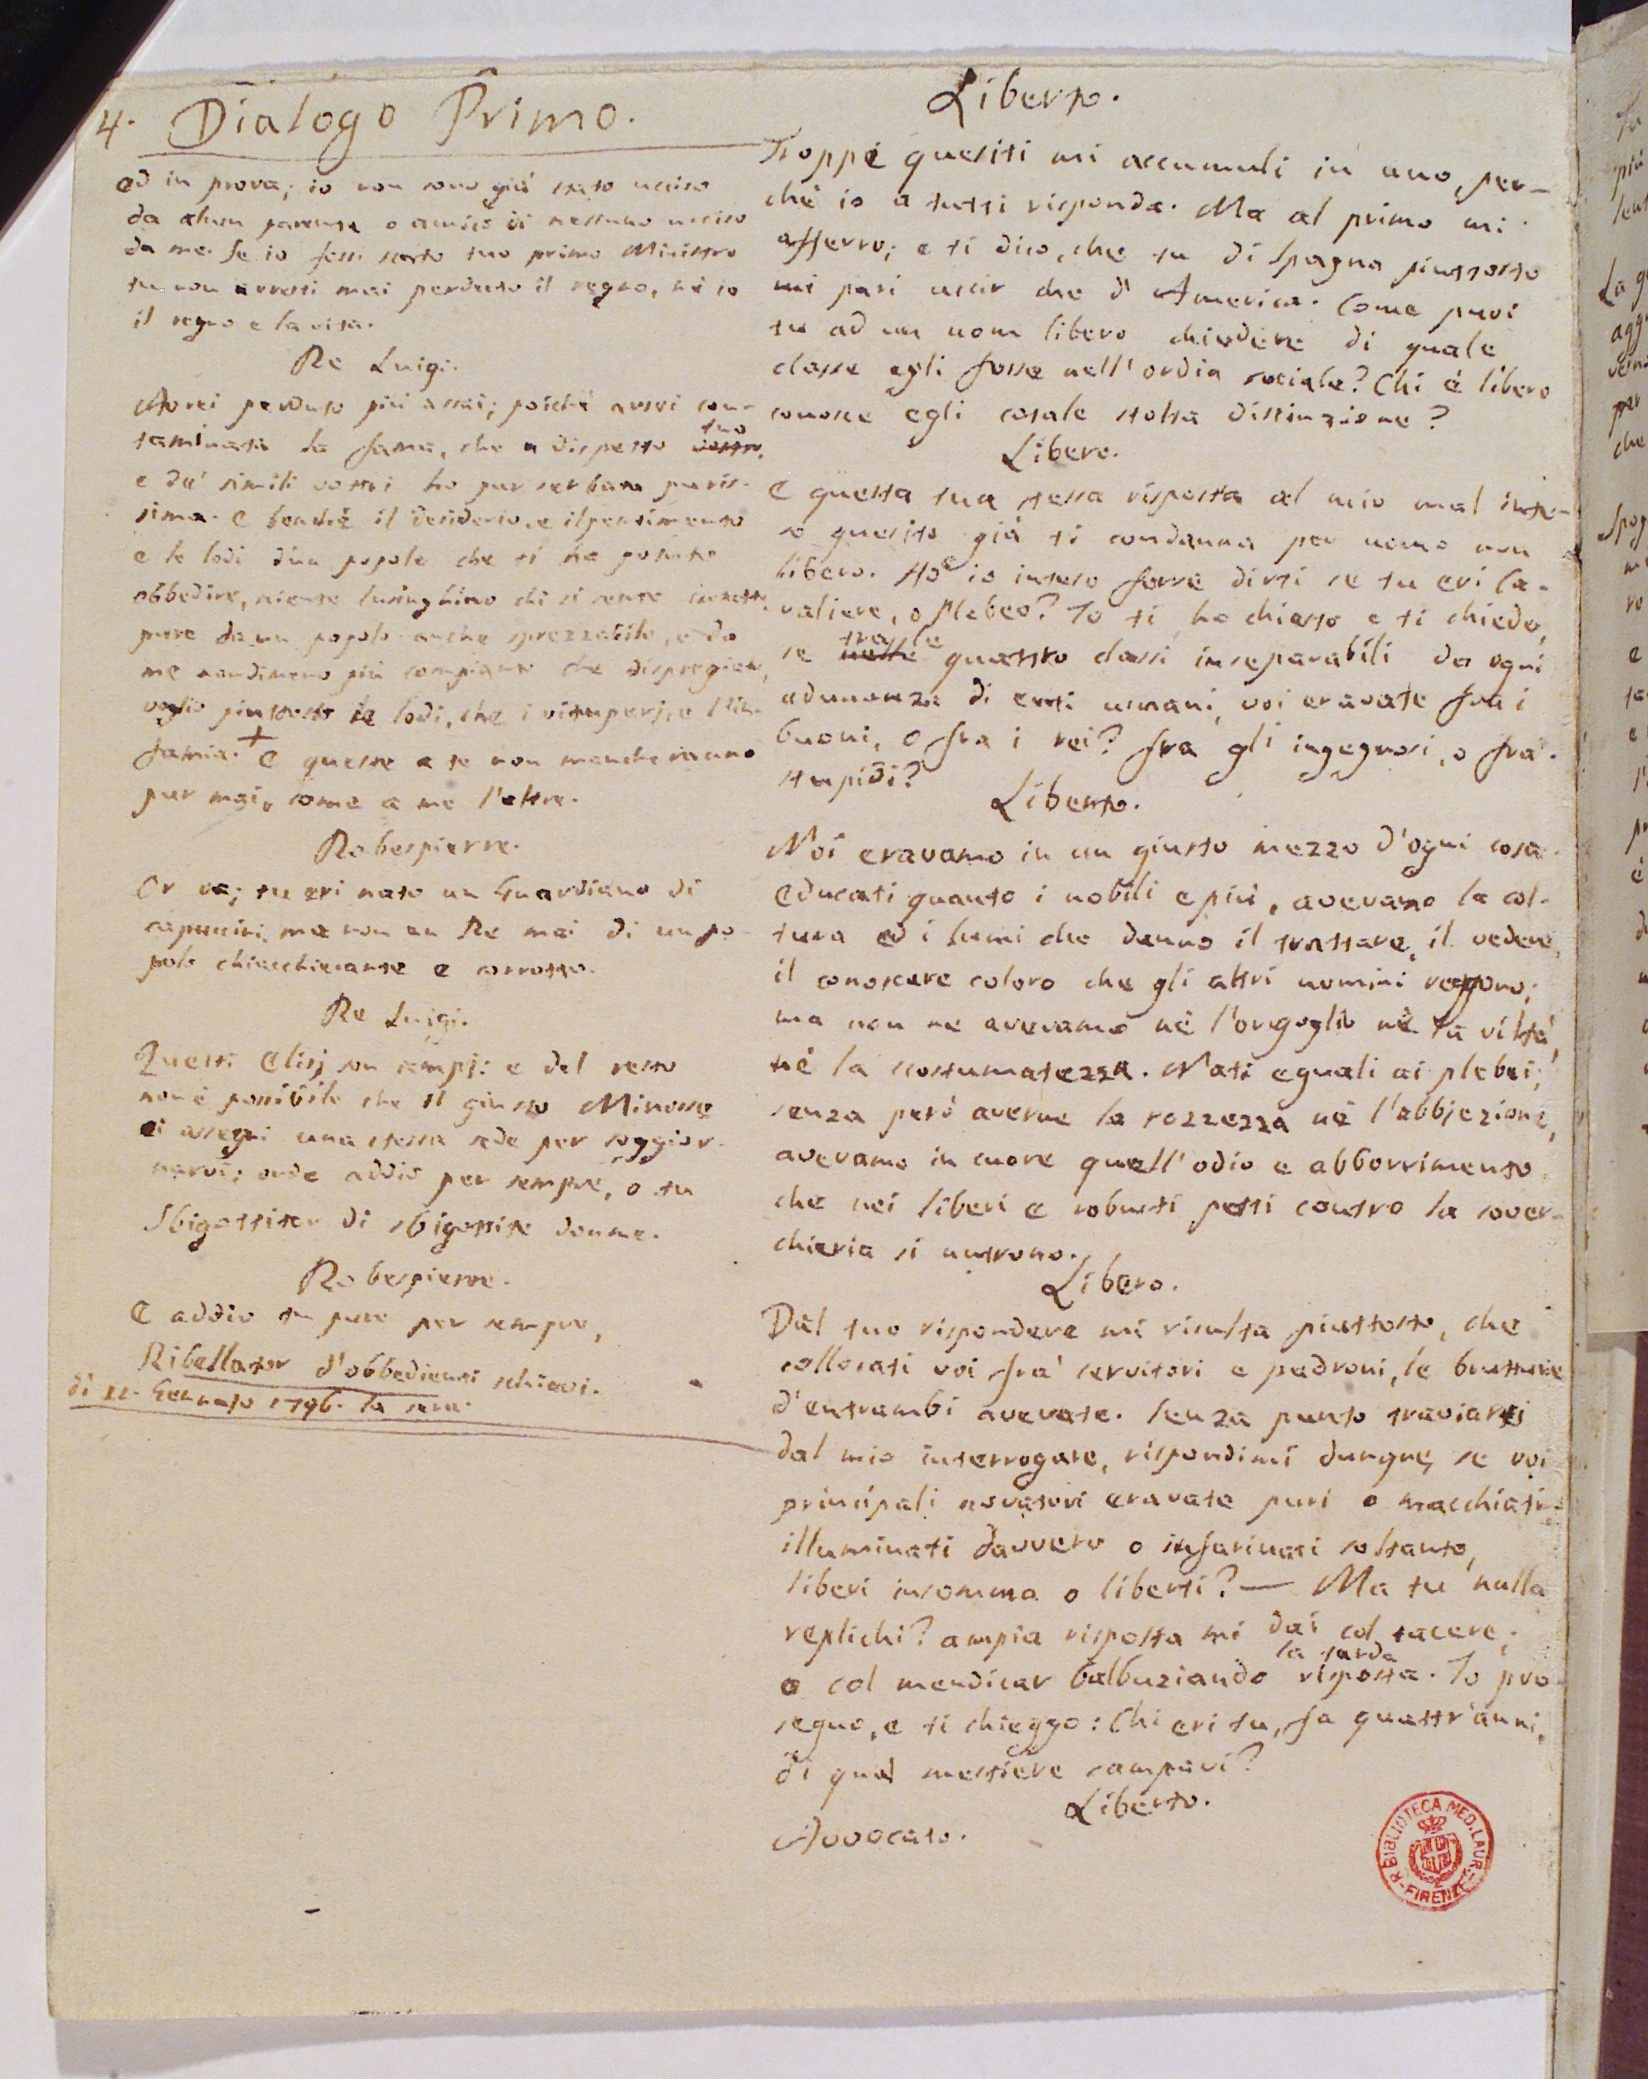 4. Dialogo Primo.
ed in prova; io non sono già stato ucciso
da alcun parente o amico di nessuno ucciso
da me. Se io fossi stato tuo primo Ministro
tu non avresti mai perduto il regno, nè io
il regno e la vita.
Re Luigi.
Avrei perduto più assai; poiché avrei con-
taminata la fama, che a dispetto vostro tuo
e de' simili vostri ho pur serbata puris-
sima. E benchè il desiderio, e il pentimento
e le lodi d'un popolo che ti ha potuto
obbedire, niente lusinghino chi si sente
pure da un popolo anche sprezzabile, e da
me nondimeno più compianto che dispregiato,
voglio piuttosto le lodi, che i vituperj, e l'in-
famia. + E queste a te non mancheranno
pur mai, come a me l'altre.
Robespierre.
Or va; tu eri nato un Guardiano di
capuccini, ma non un Re mai di un po-
polo chiacchierante e corrotto.
Re Luigi.
Questi Elisj son ampj: e del resto
non è possibile che il giusto Minosse
ci assegni una stessa sede per soggior-
narvi; onde addio per sempre, o tu
Sbigottitor di sbigottite donne.
Robespierre.
E addio tu pure per sempre,
Ribellator d'obbedienti schiavi.
di 11. Gennajo 1796. la sera.
Liberto.
Troppi quesiti mi accumuli in uno, per-
ché io a tutti risponda. Ma al primo mi
afferro; e ti dico, che tu di Spagna piuttosto
mi pari uscir che d'America. Come puoi
tu ad un uom libero chiedere di quale
classe egli fosse nell'ordin sociale? Chi è libero
conosce egli cotale stolta distinzione?
Libero.
E questa tua stessa risposta al mio mal inte-
so quesito già ti condanna per uomo non
libero. Ho io inteso forse dirti se tu eri Ca-
valiere, o Plebeo? Io ti ho chiesto e ti chiedo,
se nelle tra le quattro classi inseparabili da ogni
adunanza di enti umani, voi eravate fra i
buoni, o fra i rei? fra gli ingegnosi, o fra'
stupidi?
Liberto.
Noi eravamo in un giusto mezzo d'ogni cosa.
Educati quanto i nobili e più, avevamo la col-
tura ed i lumi che danno il trattare, il vedere,
il conoscere coloro che gli altri uomini reggono;
ma non ne avevamo nè l'orgoglio nè la viltà,
nè la scostumatezza. Nati eguali ai plebei;
senza però averne la rozzezza nè l'abbjezione,
avevamo in cuore quell'odio e abborrimento
che nei liberi e robusti petti contro la sover-
chieria si nutrono.
Libero.
Dal tuo rispondere mi risulta piuttosto, che
collocati voi fra' servitori e padroni, le brutture
d'entrambi avevate. Senza punto traviarti
dal mio interrogare, rispondimi dunque, se voi
principali novatori eravate puri o macchiati:
illuminati davvero o infarinati soltanto,
liberi insomma o liberti? — Ma tu nulla
replichi? ampia risposta mi dai col tacere;
o col mendicar balbuziando la tarda risposta. Io pro-
seguo, e ti chieggo: Chi eri tu, fa quattr'anni,
di qual mestiere campavi?
Liberto.
Avvocato.
R. BIBLIOTECA MED. LAUR. FIRENZE